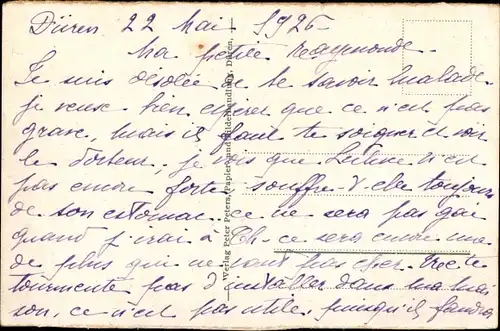 Düren 22 Mai 1926
Ma petite Raymonde
Je suis désolée de te savoir malade
je veux bien espérer que ce n'est pas
grave, mais il faut te soigner et voir
le docteur, je vois que n'est
pas encore forte souffre-t-elle toujours
de son estomac. ce ne sera pas gai
quand j'irai à ce sera encore une
de plus qui ne pas te
tourmente pas d'installer dans ma mai
son, ce n'est pas utile puisqu'il faudra
Verlag Peter Peters, Papier- und Bilderhandlung, Düren.